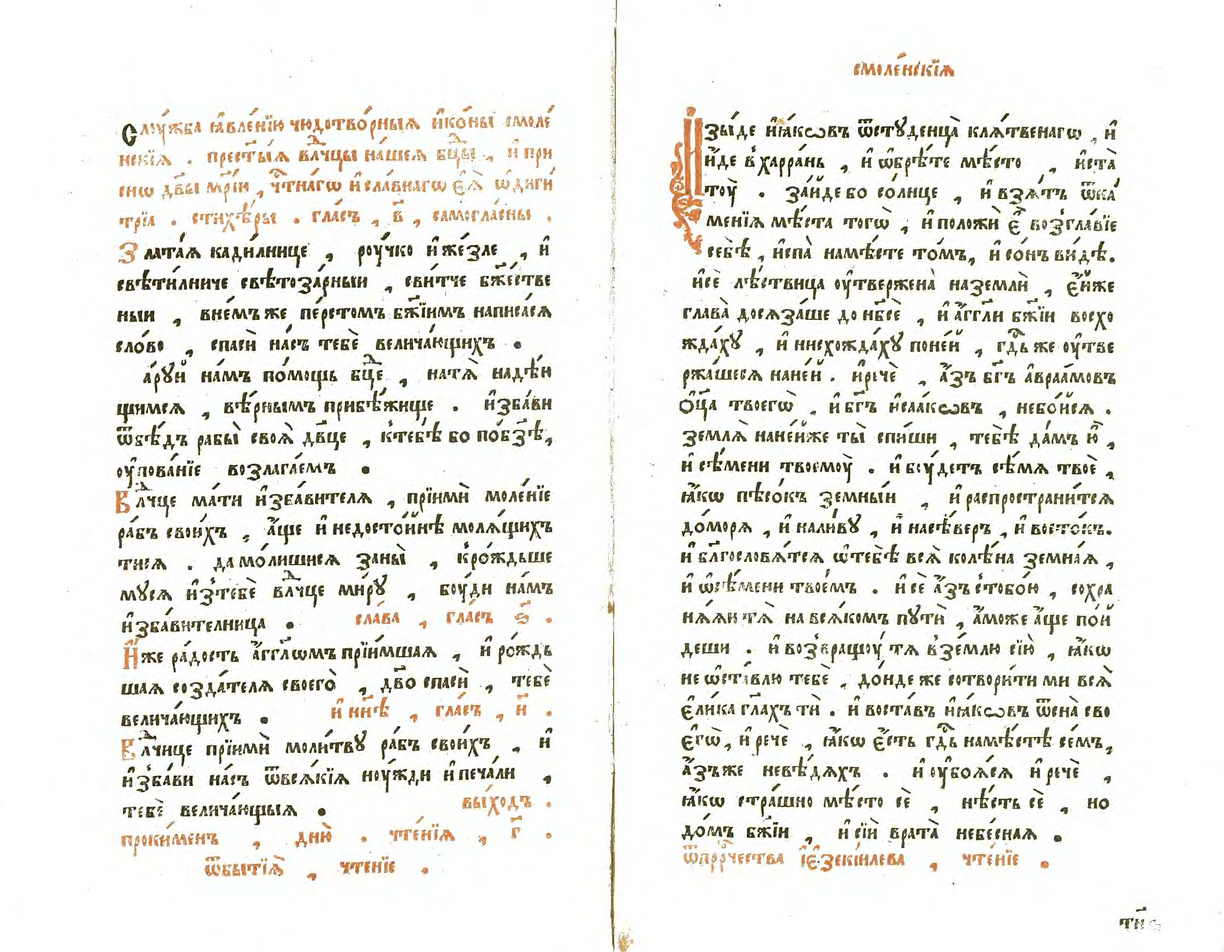 Слꙋ́жба ꙗ҆вле́нїю чюдотво́рныѧ и҆ко́ны смоле́
нскїѧ . прест҃ы́ѧ влⷣчцы на́шеѧ бцⷣы , и҆ при
снѡ дв҃ы мр҃і́и , чтⷭ҇нагѡ и҆ сла́внагѡ є҆ѧ̀ ѡ҆диги́
трїа . стихѣ́ры . гла́съ , в҃ , самогла́сны .
Злата́ѧ кади́лнице , рꙋ́чко и҆ же́зле , и҆
свѣти́лниче свѣтоза́рныи , сви́тче бж҃е́стве
ныи , внем́ъже пе́рстомъ бж҃їимъ написа́сѧ
сло́во , спасѝ на́съ тебѐ велича́ющихъ .
да́рꙋй на́мъ по́мощь бцⷣе , натѧ̀ надѣ́ѧ
щимсѧ , вѣ́рнымъ прибѣ́жище . и҆зба́ви
ѿбѣ́дъ рабы̀ своѧ̀ дв҃це , ктебѣ́ бо по́бз҃ѣ ,
ᲂу҆пова́нїе возлага́емъ .
Влⷣчце ма́ти и҆зба́вителѧ , прїимѝ моле́нїе
ра́бъ свои́хъ , а҆́ще и҆ недосто́йнѣ молѧ́щихъ
тисѧ . да мо́лишисѧ заны̀ , кро́ждьше
мꙋсѧ и҆зтебѐ влⷣчце ми́рꙋ , бꙋ́ди на́мъ
и҆зба́вителница . сла́ва , гла́съ ѕ҃ .
И҆́же ра́дость а҆́гг҃лѡмъ прїи́мшаѧ , и҆ ро́ждь
шаѧ созда́телѧ своего̀ , дв҃о спасѝ , тебѐ
велича́ющихъ . и҆ нн҃ѣ , гла́съ , и҃ .
Влⷣчице прїимѝ моли́твꙋ ра́бъ свои́хъ , и҆
и҆зба́ви на́съ ѿвсѧ́кїѧ нꙋ́жди и҆ печа́ли ,
тебѐ велича́ющыѧ . вы́ходъ .
проки́менъ , дню̀ . чте́нїѧ , г҃ .
ѿбытїѧ̀ , чте́нїе .
смоле́нскїѧ
Изы́де и҆ꙗ́кѡвъ ѿстꙋденца̀ клѧ́твенагѡ , и҆
и҆́де вхарра́нь , и҆ ѡ҆брѣ́те мѣ́сто , и҆ста̀
тꙋ̀ . за́йде бо со́лнце , и҆ взѧ́тъ ѿка́
менїѧ мѣ́ста того̀ , и҆ положѝ є҆̀ возгла́вїе
себѣ̀ , и҆спа̀ намѣ́сте то́мъ , и҆ со́нъ ви́дѣ.
и҆сѐ лѣ́ствица ᲂу҆твержена̀ наземлѝ , є҆́йже
глава̀ досѧза́ше до нб҃сѐ , и҆ а҆́гг҃ли бж҃їи восхо
жда́хꙋ , и҆ нисхожда́хꙋ поне́й , гдⷭ҇ь же ᲂу҆тве
ржа́шесѧ нане́й . и҆речѐ , а҆́зъ бг҃ъ а҆враа́мовъ
Ѻ҆ц҃а̀ твоегѡ̀ , и҆ бг҃ъ и҆саа́кѡвъ , небо́йсѧ .
землѧ̀ нане́йже ты̀ спи́ши , тебѣ̀ да́мъ ю҆̀ ,
и҆ сѣ́мени твоемꙋ̀ . и҆ бꙋ́детъ сѣ́мѧ твоѐ ,
ꙗ҆́кѡ пѣсо́къ земны́и , и҆ распространи́тсѧ
до́морѧ , и҆ на́ливꙋ , и҆ насѣ́веръ , и҆ восто́къ.
и҆ бл҃гословѧ́тсѧ ѡ҆тебѣ̀ всѧ̀ колѣ́на земна́ѧ ,
и҆ ѡ҆сѣ́мени твое́мъ . и҆ сѐ а҆́зъ стобо́ю , сохра
нѧ́ѧи тѧ̀ на всѧ́комъ пꙋтѝ , а҆́може а҆́ще по́й
деши . и҆ возвращꙋ́ тѧ взе́млю сїю̀ , ꙗ҆́кѡ
не ѡ҆ста́влю тебѐ , до́нде же сотвори́ти ми всѧ̀
є҆ли́ка гл҃ахъ тѝ . и҆ воста́въ и҆ꙗ́кѡвъ ѿсна̀ сво
є҆гѡ̀ , и҆ речѐ , ꙗ҆́кѡ є҆́сть гдⷭ҇ь намѣ́стѣ се́мъ ,
а҆́зъже невѣ́дѧхъ . и҆ ᲂу҆боѧ́сѧ и҆ речѐ ,
ꙗ҆́кѡ стра́шно мѣ́сто сѐ , нѣ́сть сѐ , но
до́мъ бж҃їи , и҆ сїѝ врата̀ небе́снаѧ .
ѿпррⷪ҇чества і҆є҆зекі́илева , чте́нїе .